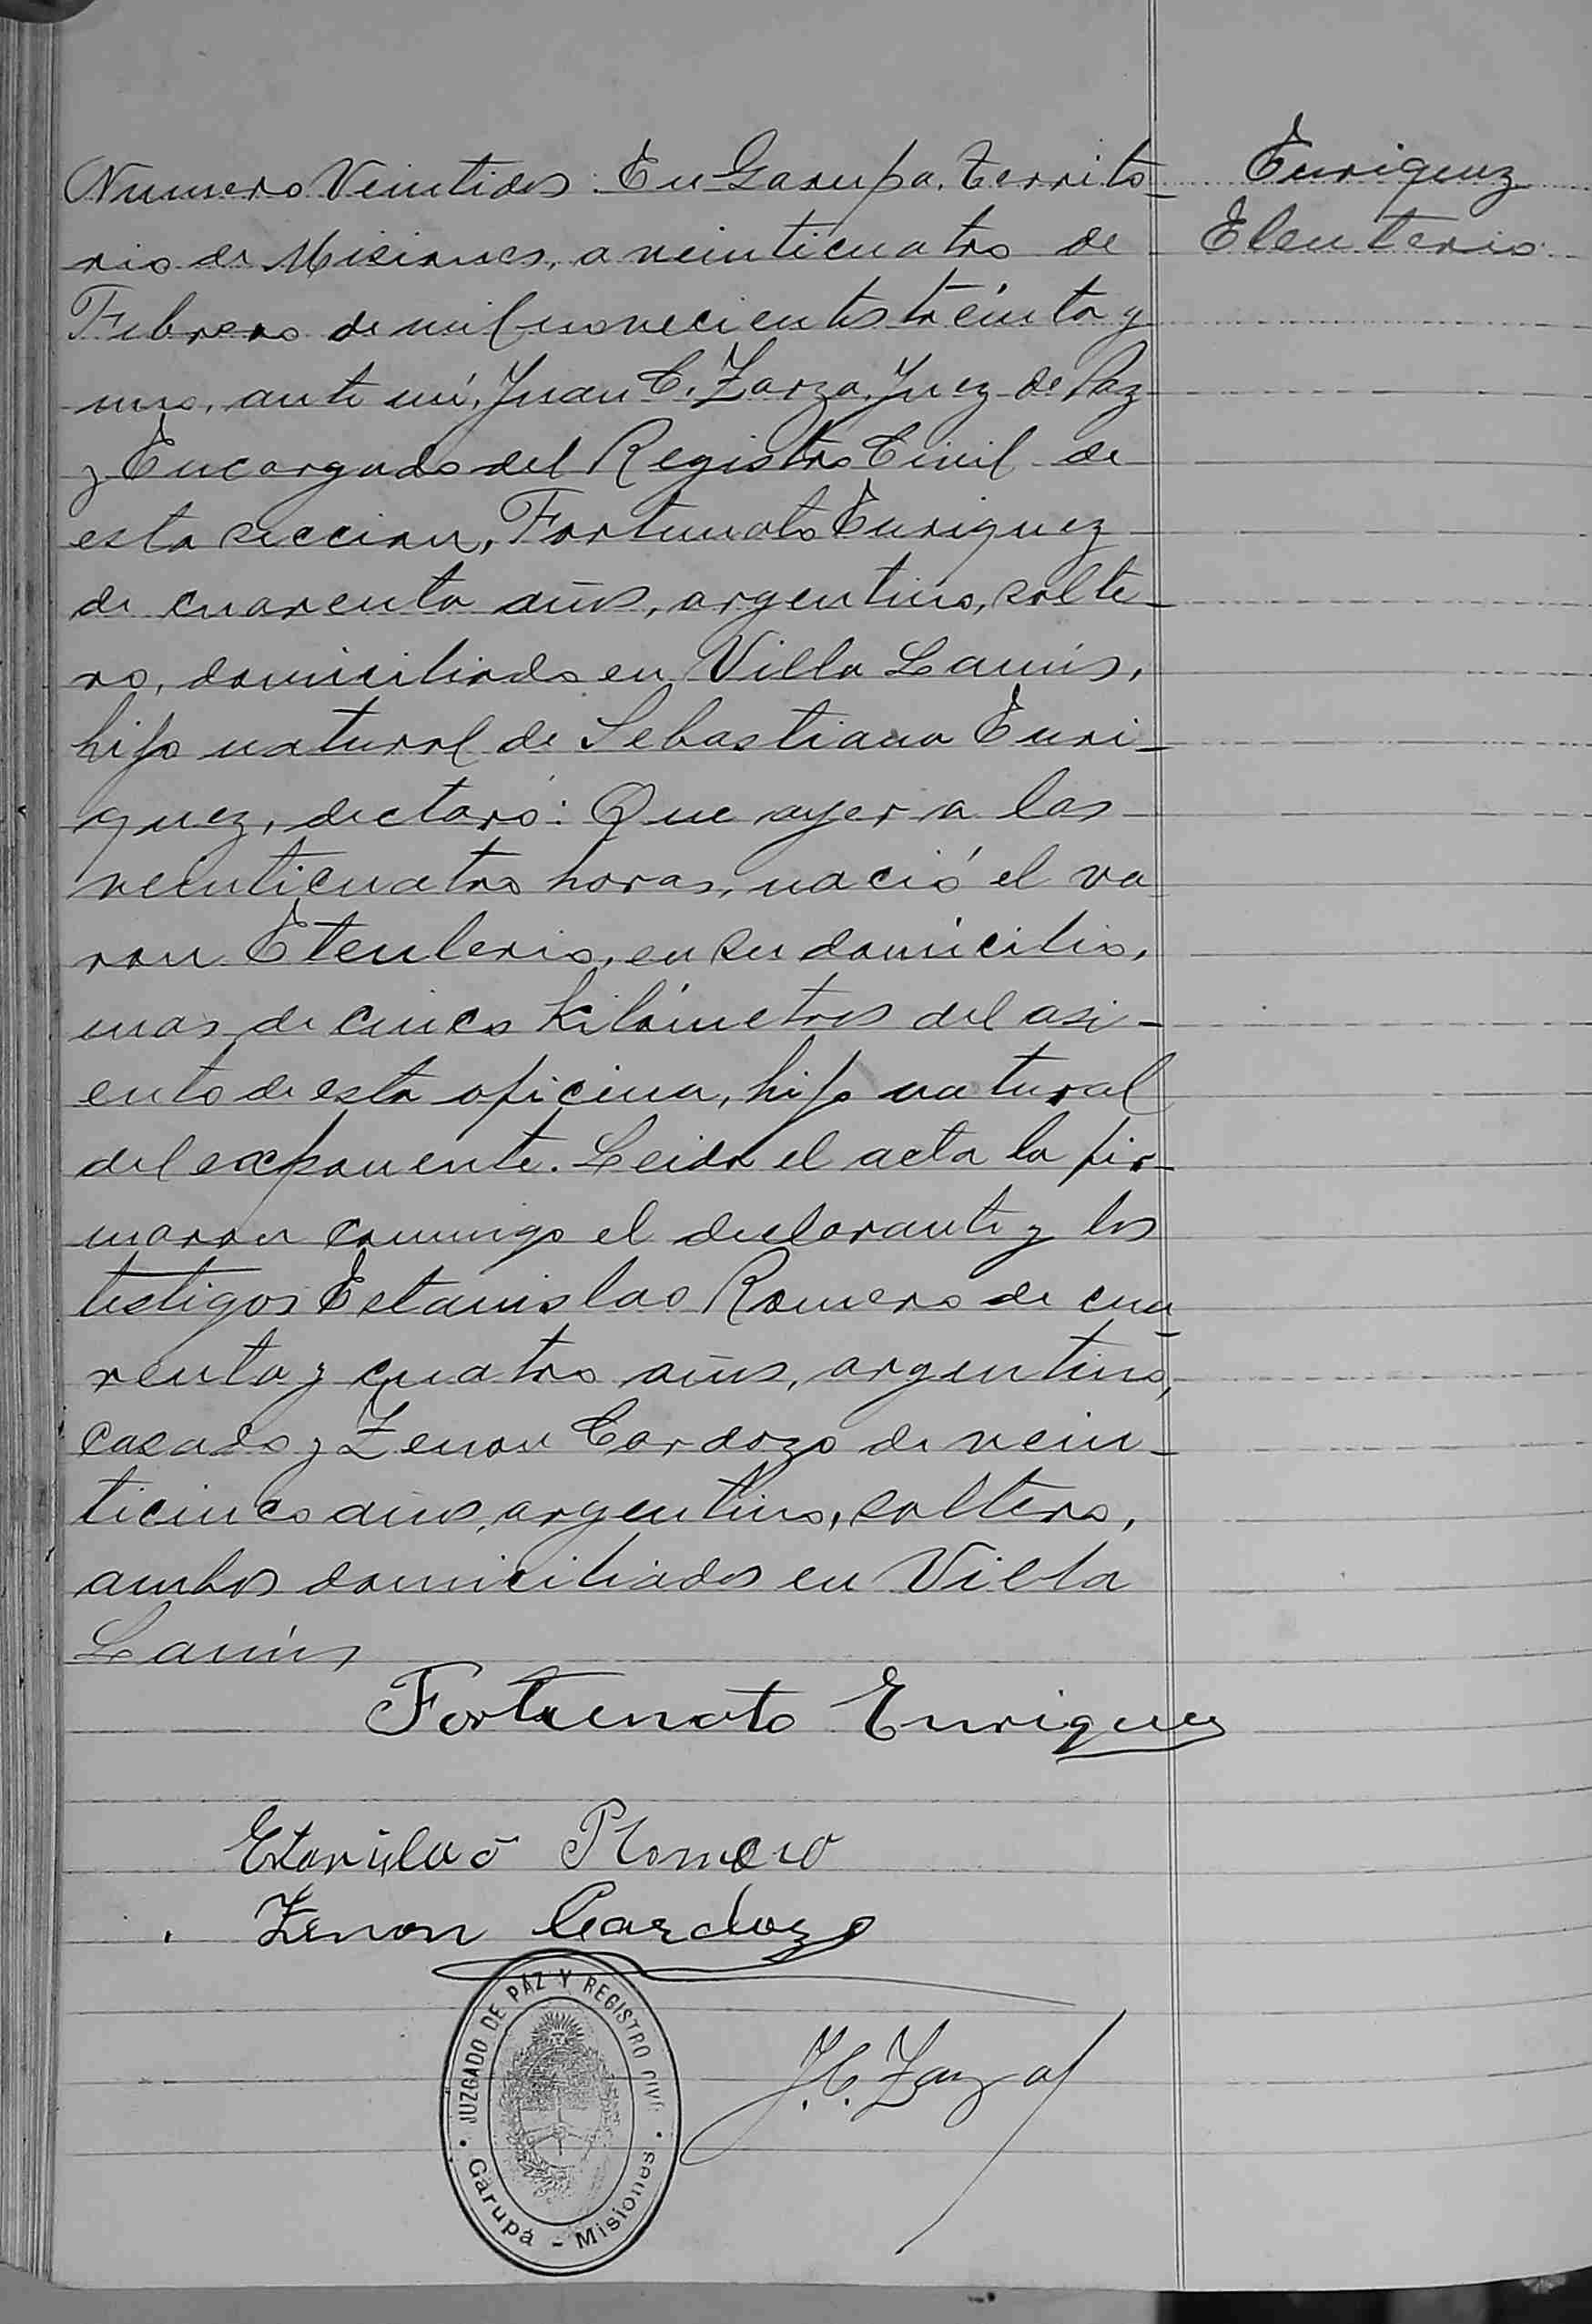 Numero Veintidos: En Garupa, Territo-
rio de Misiones, a veinticuatro de
Febrero de mil novecientos treinta y
uno, ante mí, Juan C. Zarza, Juez de Paz
y Encargado del Registro Civil de
esta seccion, Fortunato Enriquez
de cuarenta años, argentino, solte-
ro, domiciliado en Villa Lanús,
hijo natural de Sebastiana Enri-
quez, declaró: Que ayer a las
veinticuatro horas, nació el va
ron Eleuterio, en su domicilio,
mas de cinco kilómetros del asi-
ento de esta oficina, hijo natural
del exponente. Leida el acta la fir-
maron conmigo el declarante y los
testigos Estanislao Romero de cua-
renta y cuatro años, argentino,
casado y Zenon Cardozo de vein-
ticinco años, argentino, soltero,
ambos domiciliados en Villa
Lanús
Enriquez
Eleuterio
Fortunato Enriquez
Estanislao Romero
Zenon Cardozo
J. C. Zarza
JUZGADO DE PAZ Y REGISTRO CIVIL
Garupá - Misiones